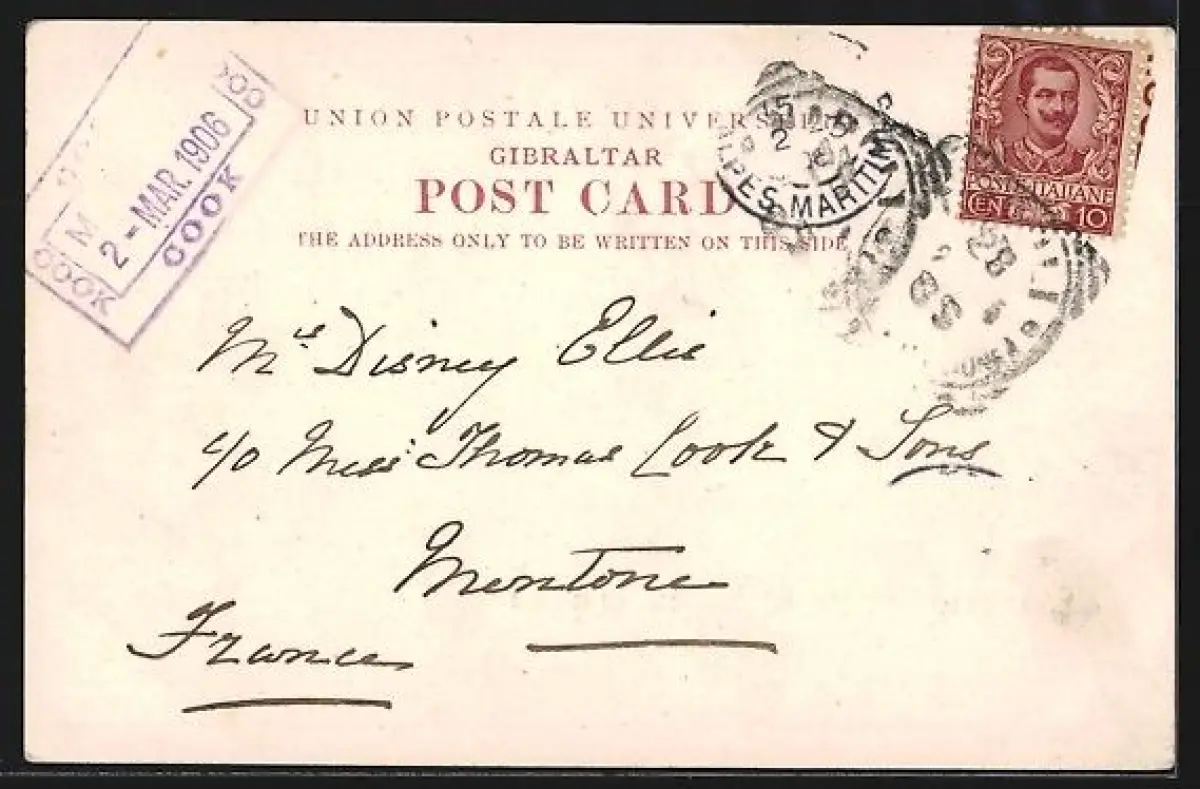 UNION POSTALE UNIVERSELLE
GIBRALTAR
POST CARD
THE ADDRESS ONLY TO BE WRITTEN ON THIS SIDE
COOK
2 - MAR. 1906
COOK
ALPES MARITIMES
POSTE ITALIANE
CENT. 10
Mrs Disney Ellis
c/o Mess: Thomas Cook & Sons
Mentone
France